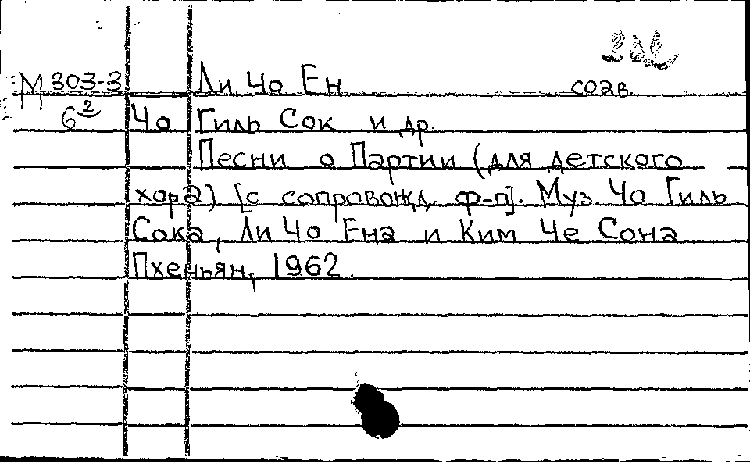 М 303-3 Ли Чо Ен соав.
6² Чо Гиль Сок и др.
Песни о Партии (для детского
хора) [с сопровожд. ф-п]. Муз. Чо Гиль
Сока, Ли Чо Ена и Ким Че Сона
Пхеньян, 1962.